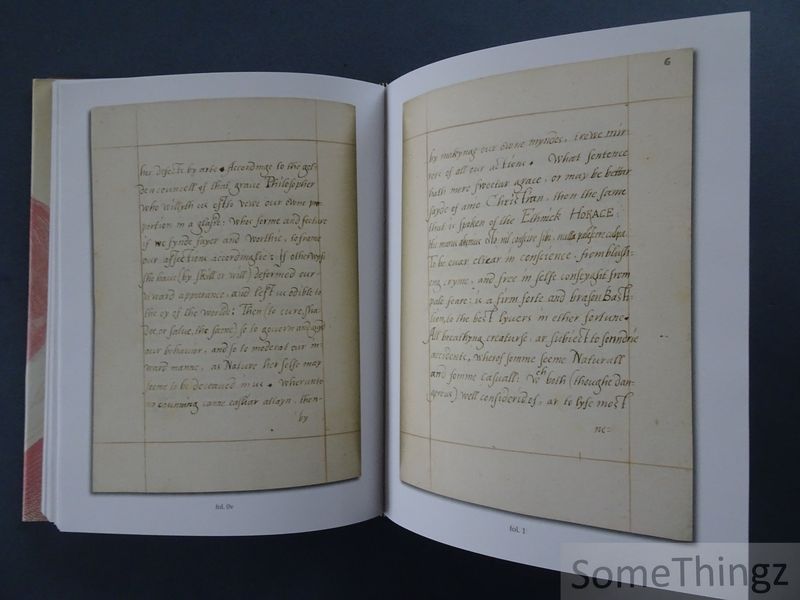 her defects by arte. Accordinge to the gol-
den councell of that graue Philosopher
who willyth us
portion in a glasse: Whes forme and feature
if we fynde fayer and worthie, to frame
our affections accordinglie: If otherwyse
she haue (by skill or will) deformed our
ward apperance, and left us odible to
the ey of the worlde: Then to cure, sha-
doe, or salue, the same) so to gouern
our behavior, and so to moderat our in-
ward manne, as Nature her selfe may
seeme to be deceaued in us. Wherunto
no counning canne easliar attayn, then
by
fol. 0v
6
by makynge our owne myndes, trewe mir-
rers of all our actions. What sentence
hath more sweetar grace, or may be bettar
sayde of anie Christian, then the same
that is spoken of the Ethnick HORACE:
Hic murus aheneus esto nil conscire sibi, nulla pallescere culpa.
To be euar clear in conscience, from blush-
eng cryme, and free in selfe conseyght from
pale feare: is a firm forte and brasen Bast-
lion, to the best lyuers in ether fortune.
All breathyng creatures, ar subiect to sonndrie
accidents, wherof somme seeme Naturall
and somme casuall. Wch both (thoughe dan-
gerous) well considerides, ar to lyfe most
ne:
fol. 1
SomeThingz